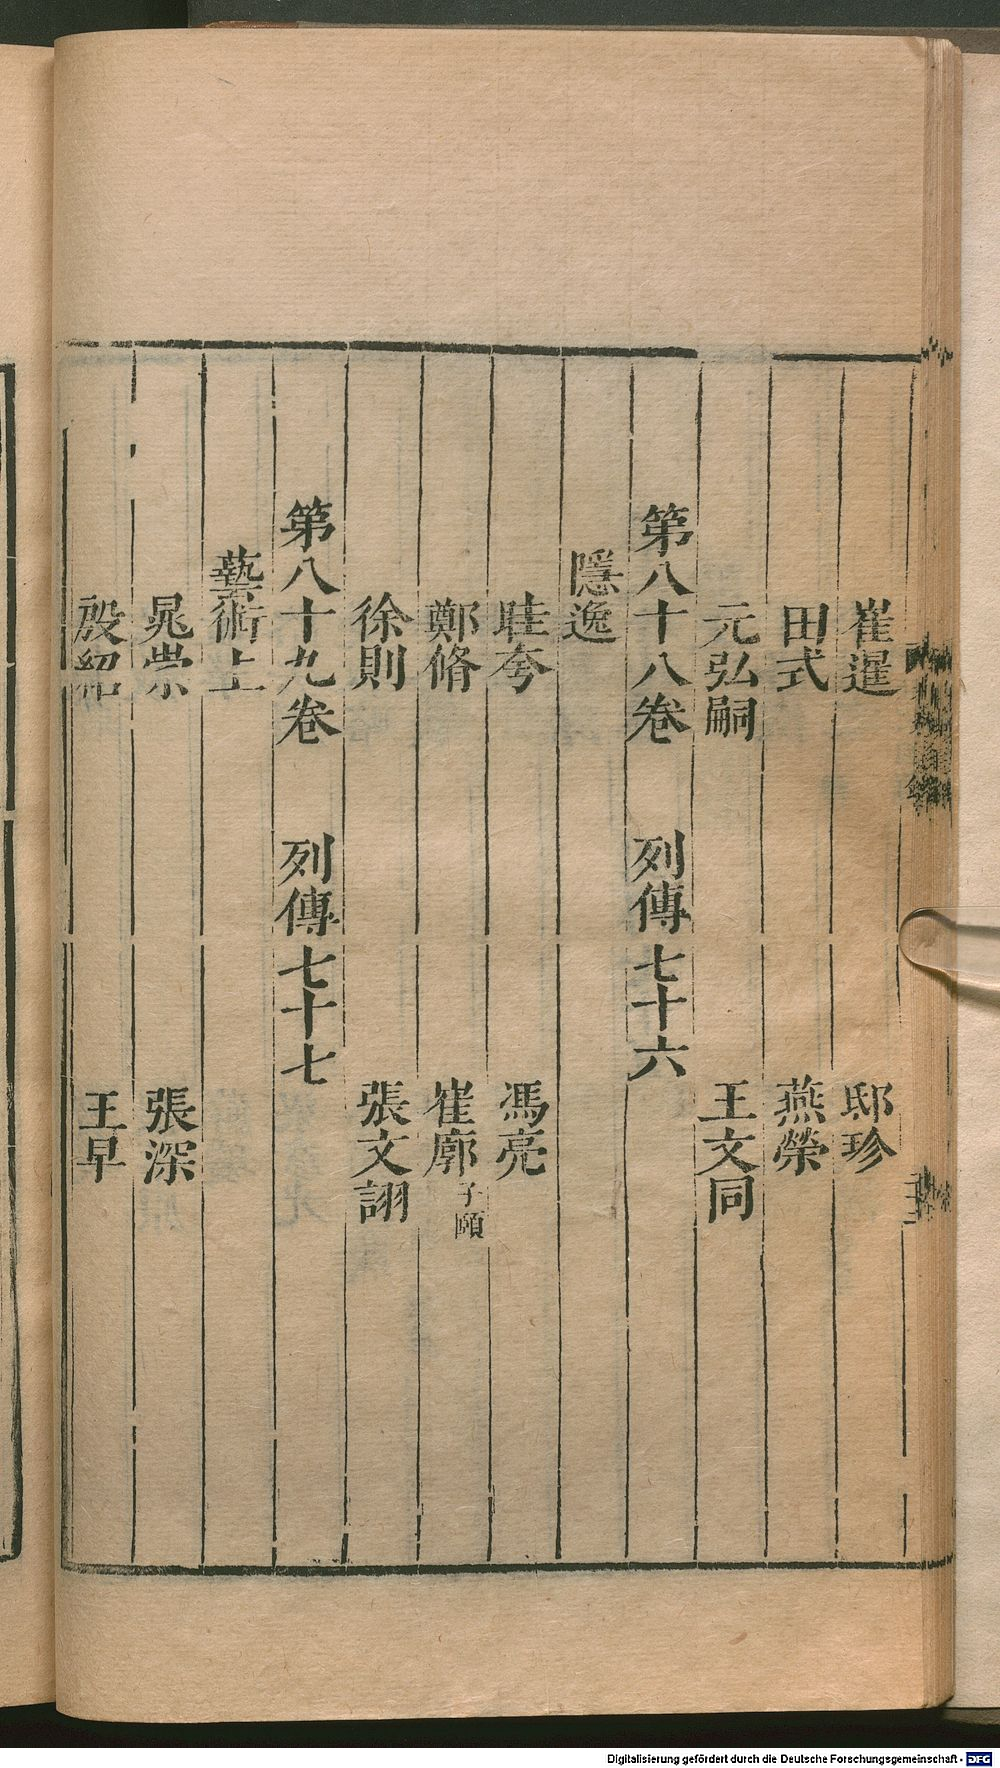 崔暹 邸珍
田式 燕榮
元弘嗣 王文同
第八十八卷 列傳七十六
隱逸
眭夸 馮亮
鄭脩 崔廓 子頤
徐則 張文詡
第八十九卷 列傳七十七
藝術上
晁崇 張深
殷紹 王早
Digitalisierung gefördert durch die Deutsche Forschungsgemeinschaft - DFG